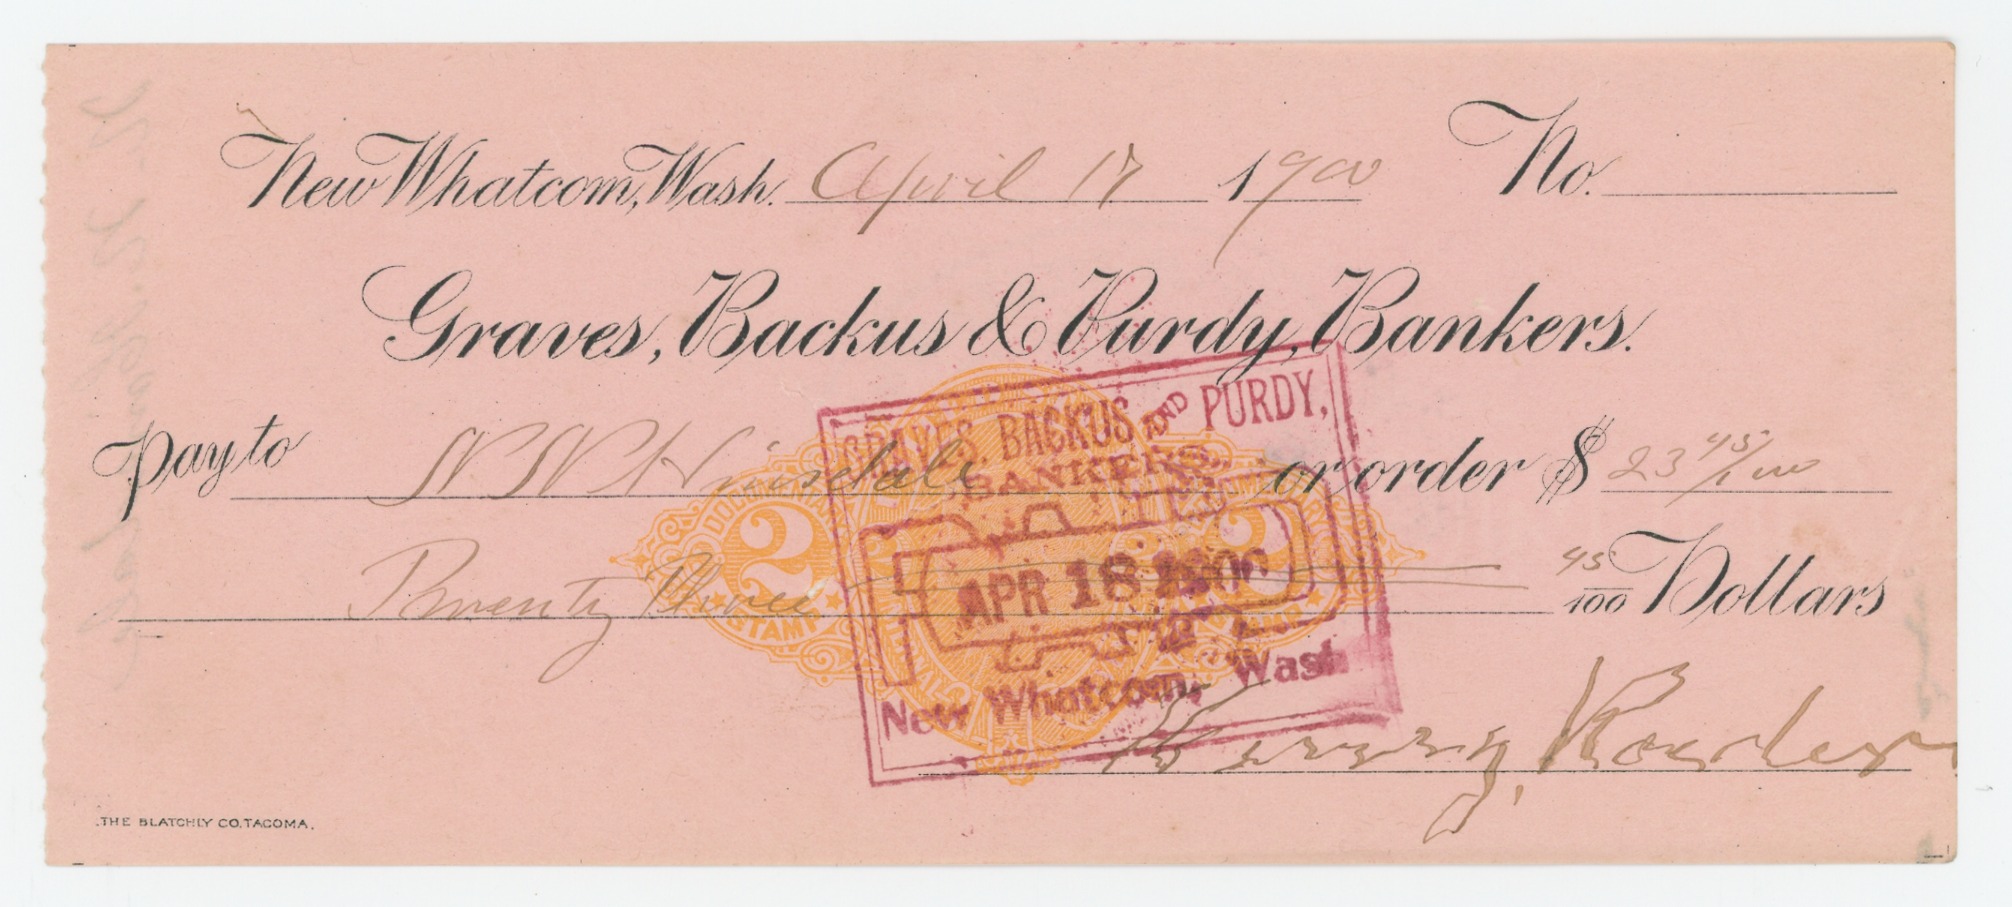 New Whatcom, Wash. April 17 1900 No.
Graves, Backus & Purdy, Bankers.
Pay to W W Hinsdale or order $ 23 45/100
Twenty Three 45/100 Dollars
2 2
DOCUMENTARY
STAMP
GRAVES, BACKUS AND PURDY,
BANKERS,
APR 18 1900
New Whatcom, Wash
Henry
THE BLATCHLY CO. TACOMA.